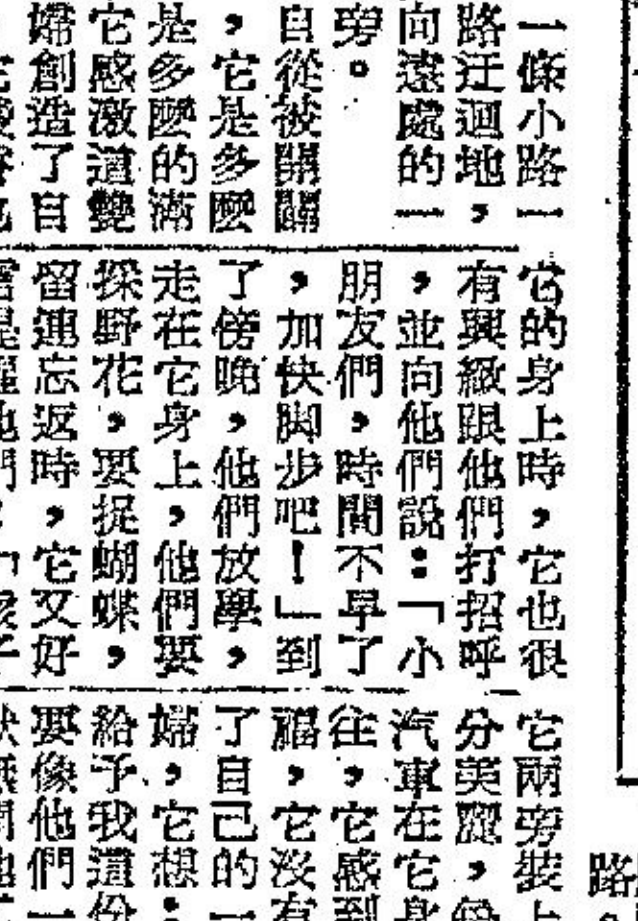 一條小路一
路迂迴地，
向遠處的一
旁。
自從被開闢
，它是多麼
是多麼的滿
它感激這雙
婦創造了自
它的身上時，它也很
有興緻跟他們打招呼
，並向他們說：「小
朋友們，時間不早了
，加快脚步吧！」到
了傍晚，他們放學，
走在它身上，他們要
採野花，要捉蝴蝶，
留連忘返時，它又好
它兩旁裝上
分美麗，每
汽車在它身
往，它感到
福，它沒有
了自己的一
婦，它想：
給予我這份
要像他們一
路